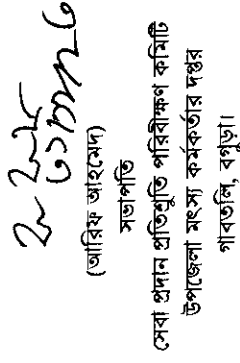 (আরিফ আহমেদ)
সভাপতি
সেবা প্রদান প্রতিশ্রুতি পরিবীক্ষণ কমিটি
উপজেলা মৎস্য কর্মকর্তার দপ্তর
গাবতলি, বগুড়া।